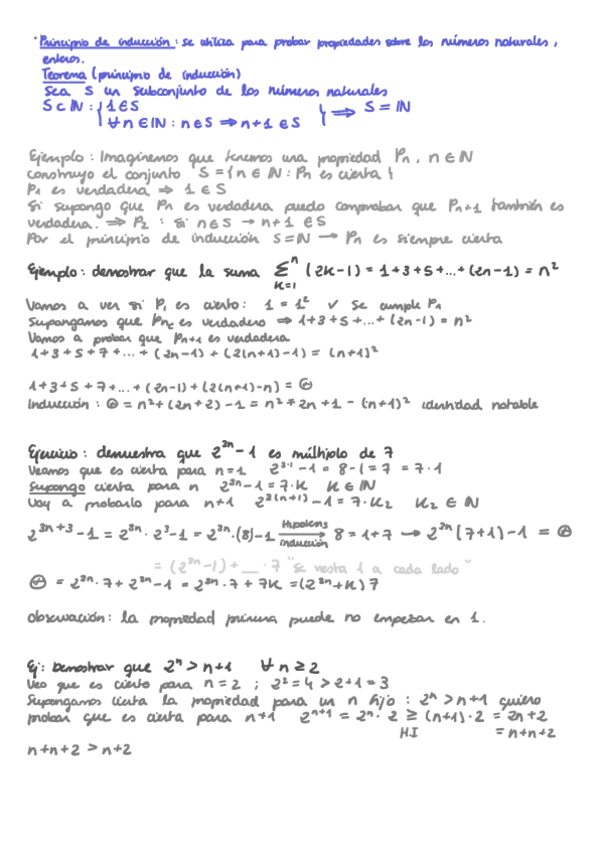 · Principio de inducción : se utiliza para probar propiedades sobre los números naturales,
enteros.
Teorema (principio de inducción)
Sea S un subconjunto de los números naturales
S ⊂ ℕ : { 1 ∈ S
∀ n ∈ ℕ : n ∈ S ⇒ n+1 ∈ S } ⇒ S = ℕ
Ejemplo : Imaginemos que tenemos una propiedad Pn , n ∈ ℕ
construyo el conjunto S = { n ∈ ℕ : Pn es cierta }
P1 es verdadera ⇒ 1 ∈ S
Si supongo que Pn es verdadera puedo comprobar que Pn+1 también es
verdadera. ⇒ P2 : si n ∈ S → n+1 ∈ S
Por el principio de inducción S = ℕ → Pn es siempre cierta
Ejemplo : demostrar que la suma Σ^n_{K=1} (2K-1) = 1+3+5+...+(2n-1) = n²
Vamos a ver si P1 es cierto : 1 = 1² ✓ se cumple P1
Supongamos que Pn es verdadero ⇒ 1+3+5+...+(2n-1) = n²
Vamos a probar que Pn+1 es verdadera
1+3+5+7+...+(2n-1)+(2(n+1)-1) = (n+1)²
1+3+5+7+...+(2n-1)+(2(n+1)-n) =
Inducción : = n²+(2n+2)-1 = n²+2n+1 - (n+1)² identidad notable
Ejercicio : demuestra que 2^{3n} - 1 es múltiplo de 7
Veamos que es cierta para n=1 2^{3·1} - 1 = 8-1 = 7 = 7·1
Supongo cierta para n 2^{3n} - 1 = 7·K K ∈ ℕ
Voy a probarlo para n+1 2^{3(n+1)} - 1 = 7·K2 K2 ∈ ℕ
2^{3n+3} - 1 = 2^{3n}·2³ - 1 = 2^{3n}·(8) - 1 Hipótesis inducción → 8 = 1+7 → 2^{3n}(7+1) - 1 =
= (2^{3n} - 1) + __ · 7 "se resta 1 a cada lado"
= 2^{3n}·7 + 2^{3n} - 1 = 2^{3n}·7 + 7K = (2^{3n}+K)7
Observación : la propiedad primera puede no empezar en 1.
Ej : Demostrar que 2ⁿ > n+1 ∀ n ≥ 2
Veo que es cierto para n = 2 ; 2² = 4 > 2+1 = 3
Supongamos cierta la propiedad para un n fijo : 2ⁿ > n+1 quiero
probar que es cierta para n+1 2^{n+1} = 2ⁿ·2 ≥ (n+1)·2 = 2n+2
H.I = n+n+2
n+n+2 > n+2